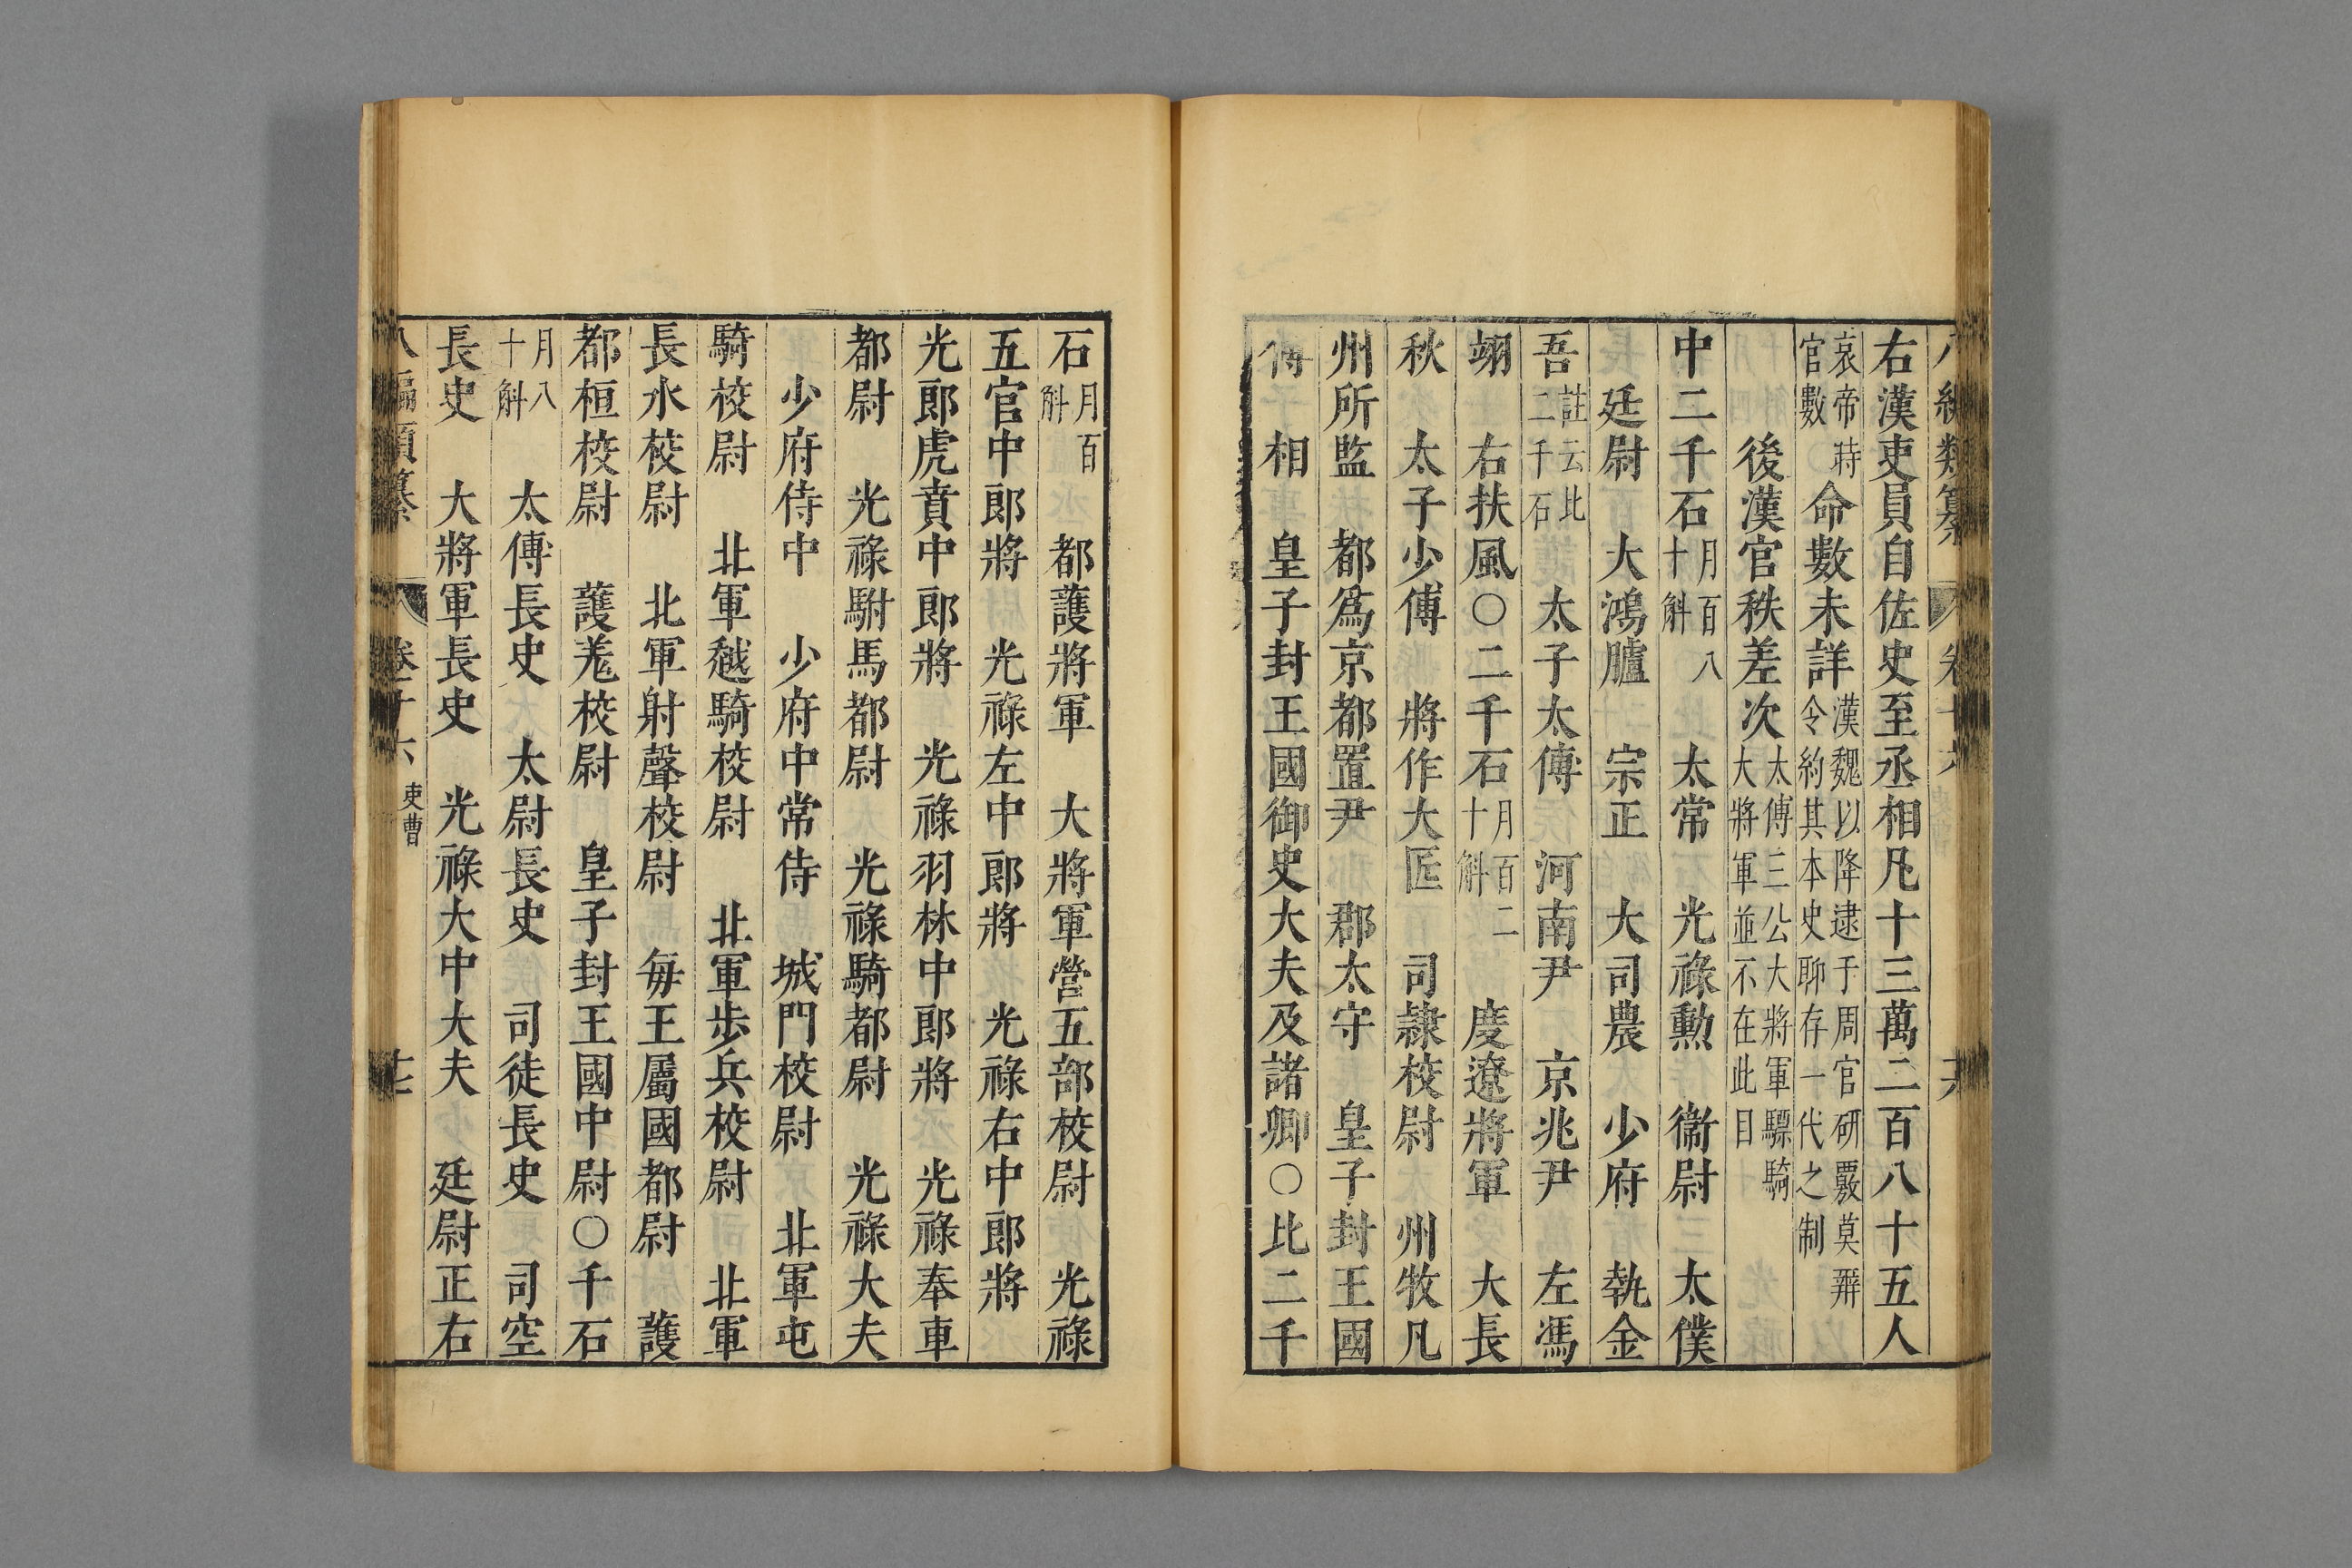 八編類纂 卷十六 十六
右漢吏員自佐史至丞相凡十三萬二百八十五人
哀帝時官數〇命數未詳漢魏以降逮于周官研覈莫辨令約其本史聊存一代之制
後漢官秩差次太傅三公大將軍驃騎大將軍並不在此目
中二千石月百八十斛 太常 光祿勲 衞尉 太僕
廷尉 大鴻臚 宗正 大司農 少府 執金
吾註云此二千石 太子太傅 河南尹 京兆尹 左馮
翊 右扶風〇二千石月百二十斛 度遼將軍 大長
秋 太子少傅 將作大匠 司隷校尉 州牧凡
州所監 都爲京都置尹 郡太守 皇子封王國
傅 相 皇子封王國御史大夫及諸卿〇比二千
石月百斛 都護將軍 大將軍營五部校尉 光祿
五官中郎將 光祿左中郎將 光祿右中郎將
光郎虎賁中郎將 光祿羽林中郎將 光祿奉車
都尉 光祿駙馬都尉 光祿騎都尉 光祿大夫
少府侍中 少府中常侍 城門校尉 北軍屯
騎校尉 北軍越騎校尉 北軍步兵校尉 北軍
長水校尉 北軍射聲校尉 每王屬國都尉 護
都桓校尉 護羗校尉 皇子封王國中尉〇千石
月八十斛 太傅長史 太尉長史 司徒長史 司空
長史 大將軍長史 光祿大中大夫 廷尉正右
八編類纂 卷十六 吏曹 十七